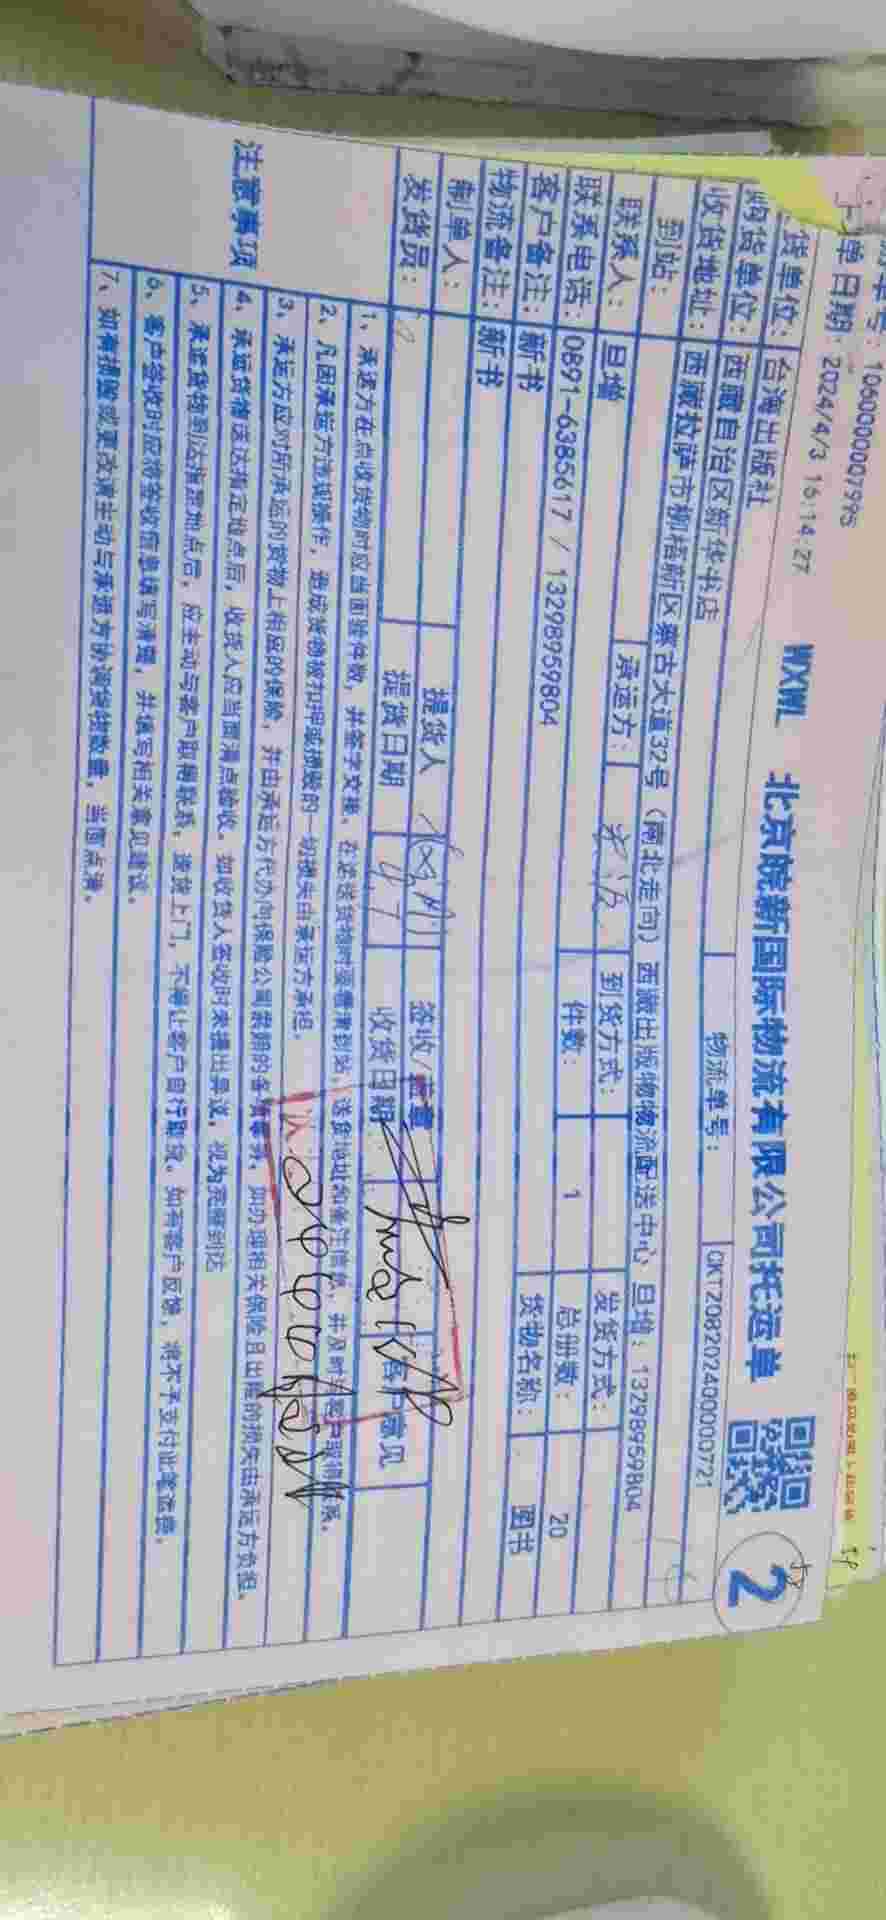 单号：106000007995
单日期：2024/4/3 15:14:27
WXWL 北京皖新国际物流有限公司托运单
2
货单位：台海出版社
购货单位：西藏自治区新华书店 物流单号：CKTZ08202400000721
收货地址：西藏拉萨市柳梧新区蒙古大道32号（南北走向）西藏出版物物流配送中心 旦增：13298959804
到站：
联系人：旦增 承运方： 到货方式： 发货方式：
联系电话：0891-6385617 / 13298959804 件数：1 总册数：20
客户备注：新书 货物名称：图书
物流备注：新书
制单人： 提货人 签收/盖章
发货员： 提货日期 收货日期 客户意见
注意事项
1、承运方在点收货物时应当面验件数，并签字交接。在送货物时要看清到站、送货地址和备注信息，并及时与客户取得联系。
2、凡因承运方违规操作，造成货物被扣押或损毁的一切损失由承运方承担。
3、承运方应对所承运的货物上相应的保险，并由承运方代办向保险公司索赔的各项事务，如办理相关保险且出险的损失由承运方负担。
4、承运货物送达指定地点后，收货人应当面清点验收。如收货人签收时未提出异议，视为完整到达
5、承运货物到达指定地点后，应主动与客户取得联系，送货上门，不得让客户自行取货。如有客户反馈，将不予支付此笔运费。
6、客户签收时应将签收信息填写清楚，并填写相关意见建议。
7、如有损毁或更改请主动与承运方协调货物数量，当面点清。